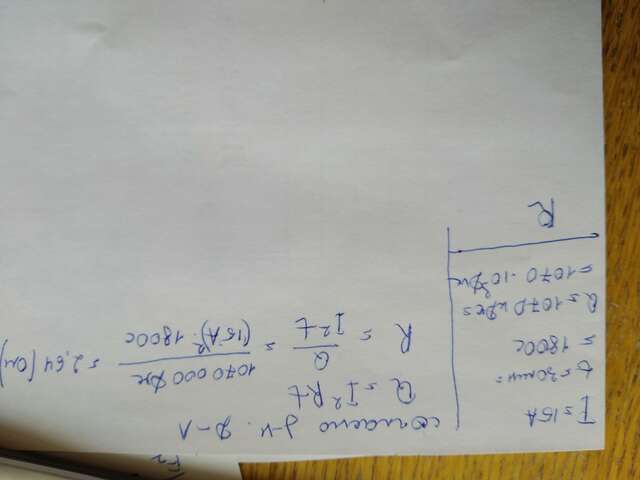 I = 15A
t = 30мин =
= 1800c
Q = 1070 кДж =
= 1070 · 10³ Дж
R
согласно з-н. Д-Л
Q = I² R t
R = Q / I² t = 1070 000 Дж / (15A)² · 1800c = 2,64 (Ом)
F₂